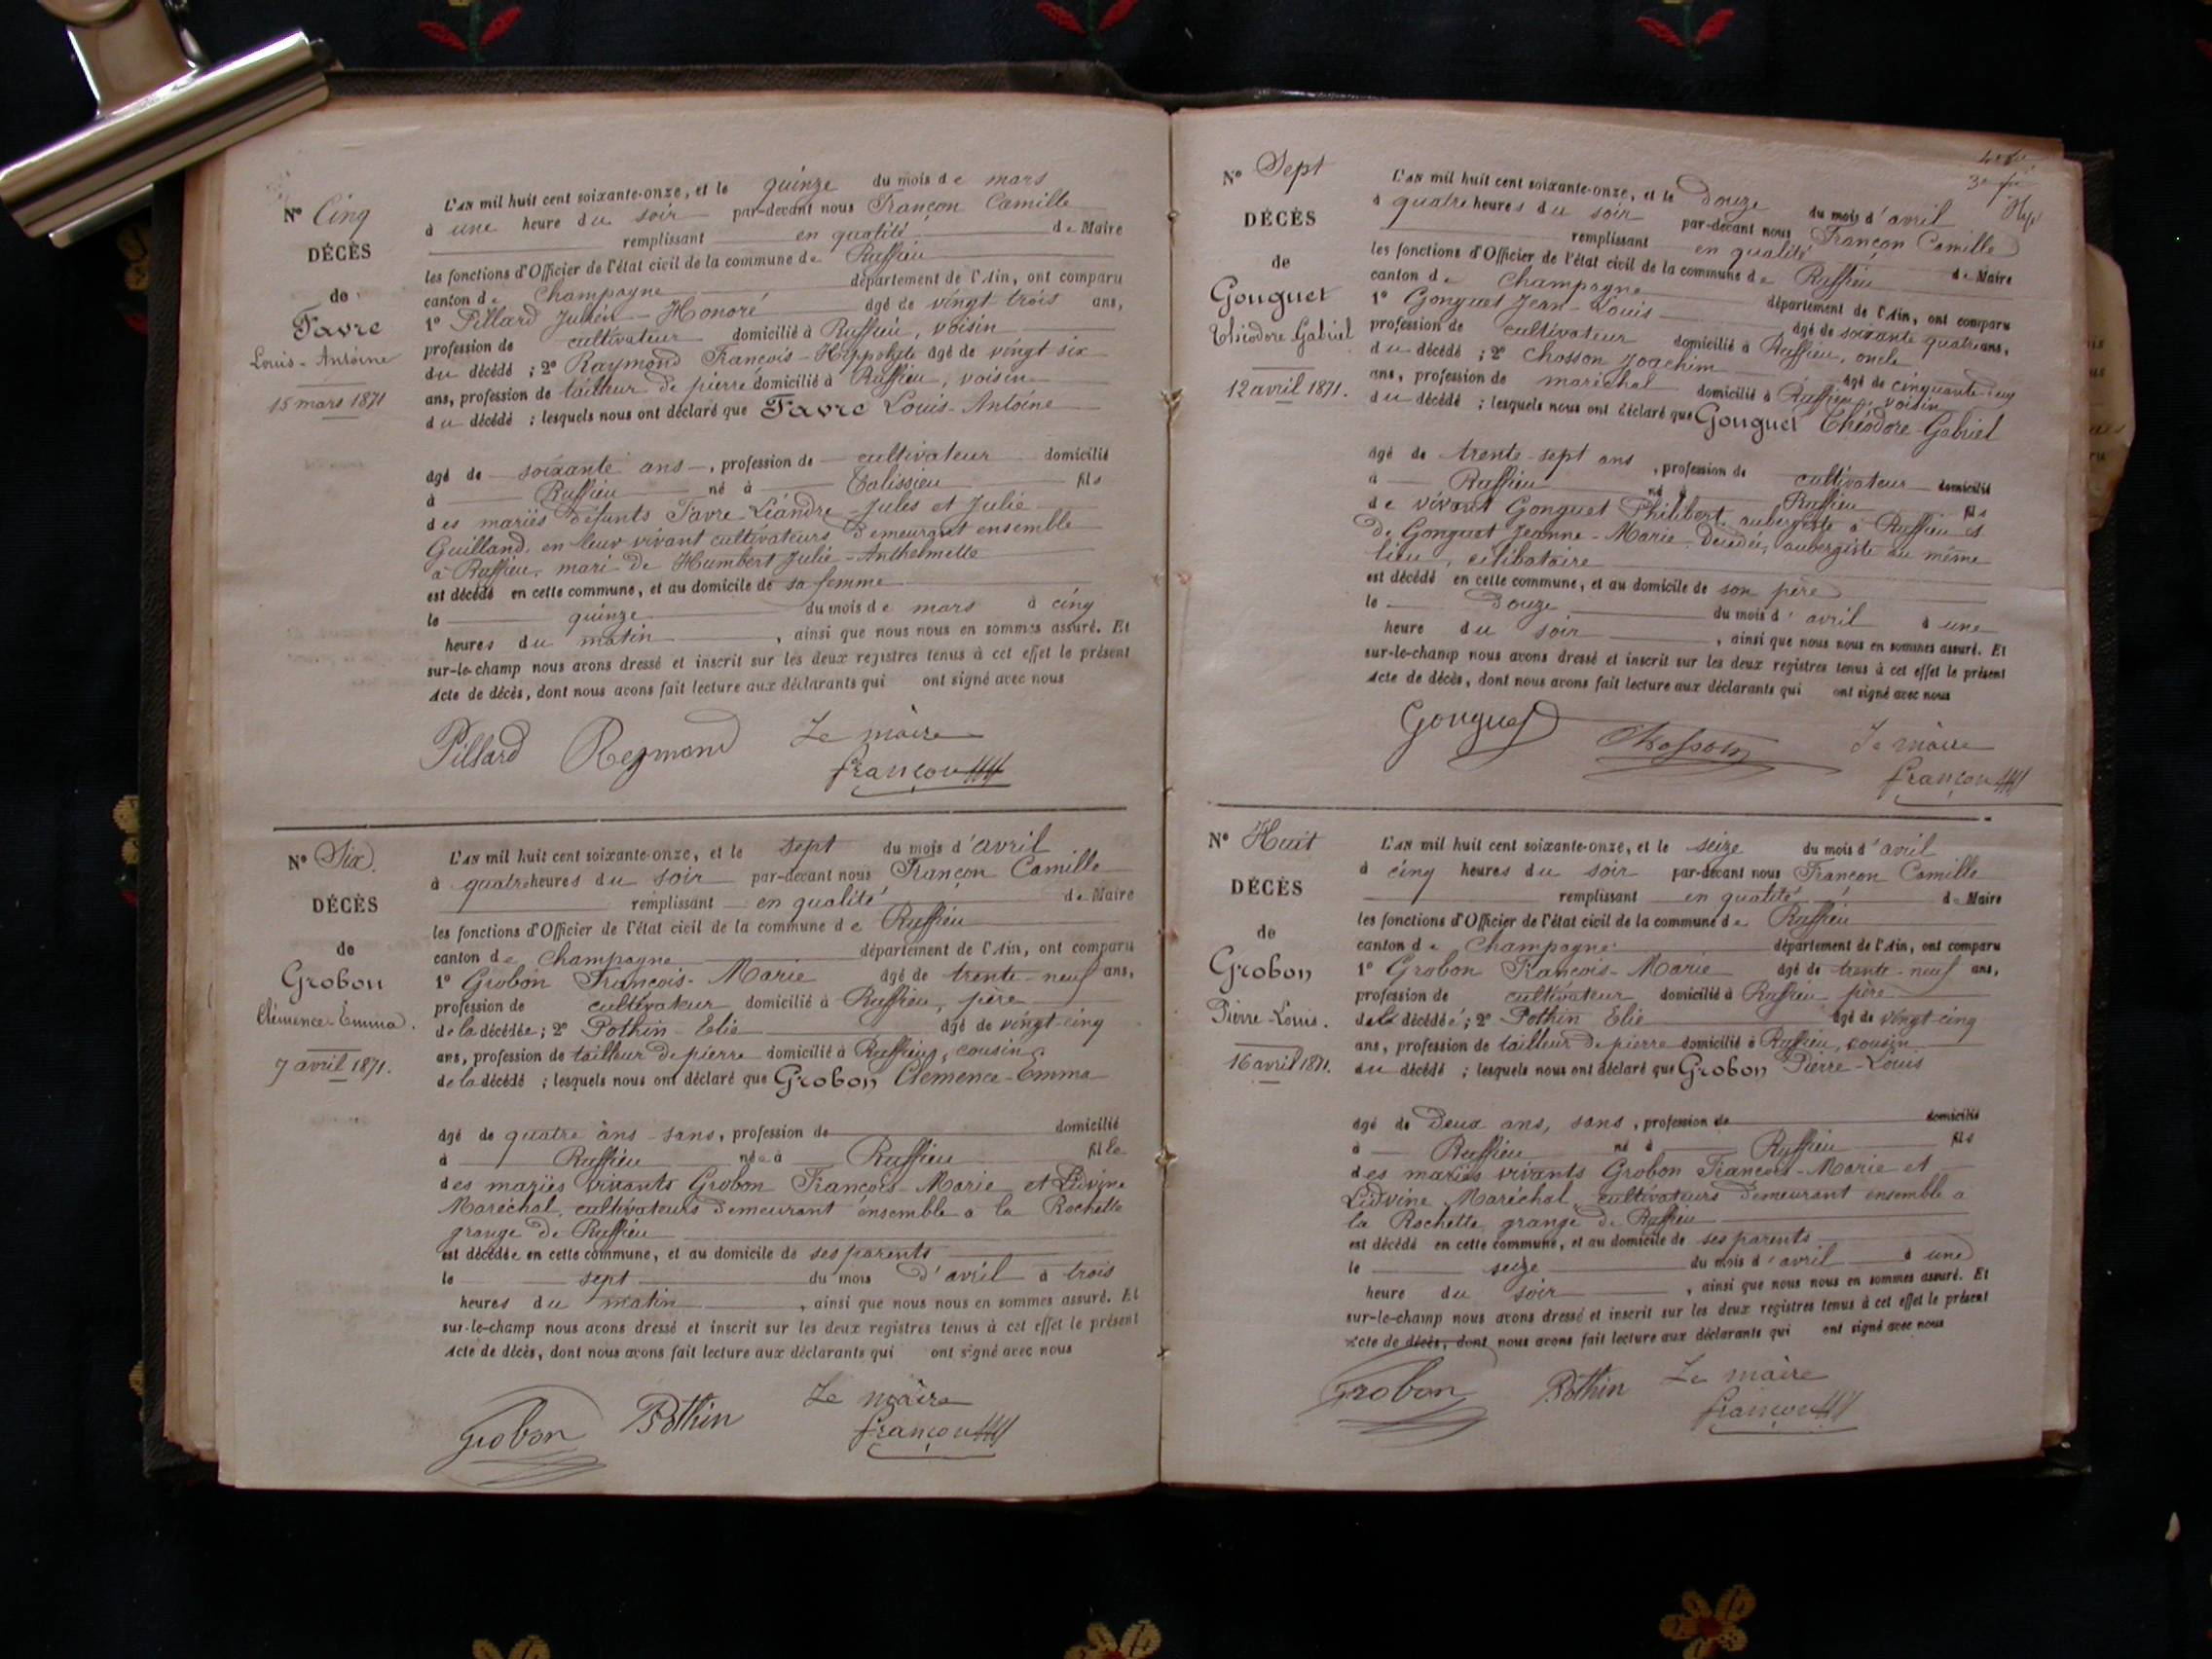 N° Cinq
DÉCÈS
de
Favre
Louis-Antoine
15 mars 1871
L'AN mil huit cent soixante-onze, et le quinze du mois de mars
à une heure du soir par-devant nous Françon Camille
remplissant en qualité de Maire
les fonctions d'Officier de l'état civil de la commune de Ruffieu
canton de Champagne département de l'Ain, ont comparu
1° Pillard Julien-Honoré âgé de vingt trois ans,
profession de cultivateur domicilié à Ruffieu, voisin
du décédé ; 2° Raymond François-Hippolyte âgé de vingt six
ans, profession de tailleur de pierre domicilié à Ruffieu, voisin
du décédé ; lesquels nous ont déclaré que Favre Louis-Antoine
âgé de soixante ans, profession de cultivateur domicilié
à Ruffieu né à Talissieu fils
des mariés défunts Favre Léandre-Jules et Julie
Guilland, en leur vivant cultivateurs demeurant ensemble
à Ruffieu, mari de Humbert Julie-Anthelmette
est décédé en cette commune, et au domicile de sa femme
le quinze du mois de mars à cinq
heures du matin, ainsi que nous nous en sommes assuré. Et
sur-le-champ nous avons dressé et inscrit sur les deux registres tenus à cet effet le présent
Acte de décès, dont nous avons fait lecture aux déclarants qui ont signé avec nous
Pillard Reymond Le maire
françon
N° Six.
DÉCÈS
de
Grobon
Clémence-Emma.
7 avril 1871.
L'AN mil huit cent soixante-onze, et le sept du mois d'avril
à quatre heures du soir par-devant nous Françon Camille
remplissant en qualité de Maire
les fonctions d'Officier de l'état civil de la commune de Ruffieu
canton de Champagne département de l'Ain, ont comparu
1° Grobon François-Marie âgé de trente-neuf ans,
profession de cultivateur domicilié à Ruffieu, père
de la décédée ; 2° Pothin Elie âgé de vingt-cinq
ans, profession de tailleur de pierre domicilié à Ruffieu, cousin
de la décédé ; lesquels nous ont déclaré que Grobon Clémence-Emma
âgé de quatre ans sans, profession de domicilié
à Ruffieu née à Ruffieu fille
des mariés vivants Grobon François-Marie et Lidvine
Maréchal, cultivateurs demeurant ensemble à la Rochette
grange de Ruffieu
est décédée en cette commune, et au domicile de ses parents
le sept du mois d'avril à trois
heures du matin, ainsi que nous nous en sommes assuré. Et
sur-le-champ nous avons dressé et inscrit sur les deux registres tenus à cet effet le présent
Acte de décès, dont nous avons fait lecture aux déclarants qui ont signé avec nous
Grobon Pothin Le maire
françon
N° Sept
DÉCÈS
de
Gonguet
Théodore Gabriel
12 avril 1871.
L'AN mil huit cent soixante-onze, et le douze du mois d'avril
à quatre heures du soir par-devant nous Françon Camille
remplissant en qualité de Maire
les fonctions d'Officier de l'état civil de la commune de Ruffieu
canton de Champagne département de l'Ain, ont comparu
1° Gonguet Jean-Louis âgé de soixante quatre ans,
profession de cultivateur domicilié à Ruffieu, oncle
du décédé ; 2° Chosson Joachim âgé de cinquante-
ans, profession de maréchal domicilié à Ruffieu, voisin
du décédé ; lesquels nous ont déclaré que Gonguet Théodore-Gabriel
âgé de trente-sept ans, profession de cultivateur domicilié
à Ruffieu né à Ruffieu fils
de vivant Gonguet Philibert, aubergiste à Ruffieu et
de Gonguet Jeanne-Marie, décédée, aubergiste au même
lieu, célibataire
est décédé en cette commune, et au domicile de son père
le douze du mois d'avril à une
heure du soir, ainsi que nous nous en sommes assuré. Et
sur-le-champ nous avons dressé et inscrit sur les deux registres tenus à cet effet le présent
Acte de décès, dont nous avons fait lecture aux déclarants qui ont signé avec nous
Gonguet Chosson Le maire
françon
N° Huit
DÉCÈS
de
Grobon
Pierre-Louis.
16 avril 1871.
L'AN mil huit cent soixante-onze, et le seize du mois d'avril
à cinq heures du soir par-devant nous Françon Camille
remplissant en qualité de Maire
les fonctions d'Officier de l'état civil de la commune de Ruffieu
canton de Champagne département de l'Ain, ont comparu
1° Grobon François-Marie âgé de trente-neuf ans,
profession de cultivateur domicilié à Ruffieu père
de la décédé ; 2° Pothin Elie âgé de vingt-cinq
ans, profession de tailleur de pierre domicilié à Ruffieu, cousin
du décédé ; lesquels nous ont déclaré que Grobon Pierre-Louis
âgé de deux ans, sans, profession de domicilié
à Ruffieu né à Ruffieu fils
des mariés vivants Grobon François-Marie et
Lidvine Maréchal, cultivateurs demeurant ensemble à
la Rochette, grange de Ruffieu
est décédé en cette commune, et au domicile de ses parents
le seize du mois d'avril à une
heure du soir, ainsi que nous nous en sommes assuré. Et
sur-le-champ nous avons dressé et inscrit sur les deux registres tenus à cet effet le présent
Acte de décès, dont nous avons fait lecture aux déclarants qui ont signé avec nous
Grobon Pothin Le maire
françon